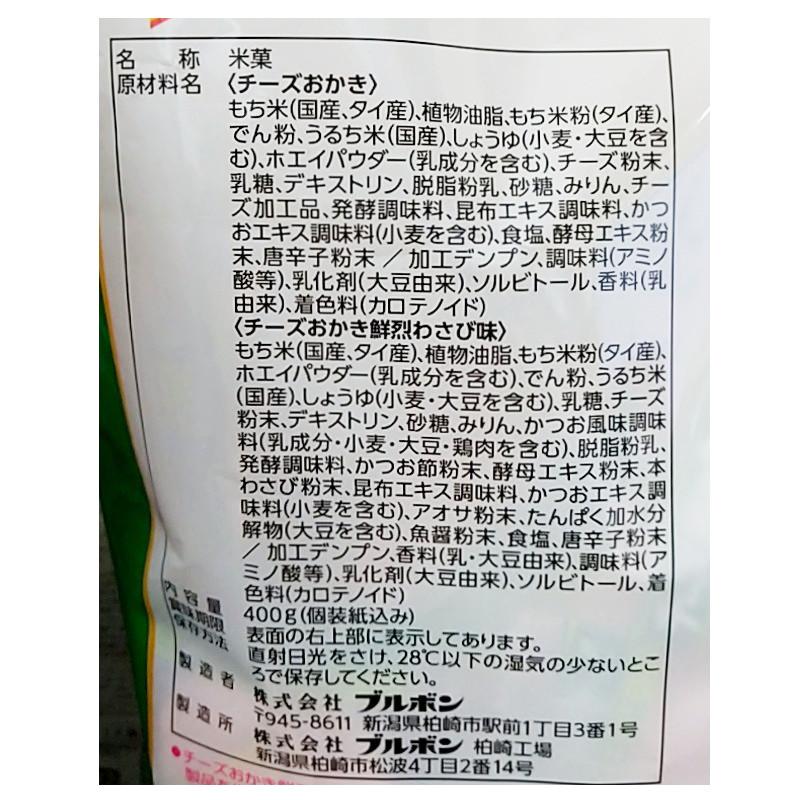 名称 米菓
原材料名 〈チーズおかき〉
もち米(国産、タイ産)、植物油脂、もち米粉(タイ産)、
でん粉、うるち米(国産)、しょうゆ(小麦・大豆を含
む)、ホエイパウダー(乳成分を含む)、チーズ粉末、
乳糖、デキストリン、脱脂粉乳、砂糖、みりん、チー
ズ加工品、発酵調味料、昆布エキス調味料、かつ
おエキス調味料(小麦を含む)、食塩、酵母エキス粉
末、唐辛子粉末／加工デンプン、調味料(アミノ
酸等)、乳化剤(大豆由来)、ソルビトール、香料(乳
由来)、着色料(カロテノイド)
〈チーズおかき鮮烈わさび味〉
もち米(国産、タイ産)、植物油脂、もち米粉(タイ産)、
ホエイパウダー(乳成分を含む)、でん粉、うるち米
(国産)、しょうゆ(小麦・大豆を含む)、乳糖、チーズ
粉末、デキストリン、砂糖、みりん、かつお風味調味
料(乳成分・小麦・大豆・鶏肉を含む)、脱脂粉乳、
発酵調味料、かつお節粉末、酵母エキス粉末、本
わさび粉末、昆布エキス調味料、かつおエキス調
味料(小麦を含む)、アオサ粉末、たんぱく加水分
解物(大豆を含む)、魚醤粉末、食塩、唐辛子粉末
／加工デンプン、香料(乳・大豆由来)、調味料(ア
ミノ酸等)、乳化剤(大豆由来)、ソルビトール、着
色料(カロテノイド)
内容量 400g(個装紙込み)
賞味期限 表面の右上部に表示してあります。
保存方法 直射日光をさけ、28℃以下の湿気の少ないとこ
ろで保存してください。
製造者 株式会社 ブルボン
〒945-8611 新潟県柏崎市駅前1丁目3番1号
製造所 株式会社 ブルボン 柏崎工場
新潟県柏崎市松波4丁目2番14号
●チーズおかき鮮